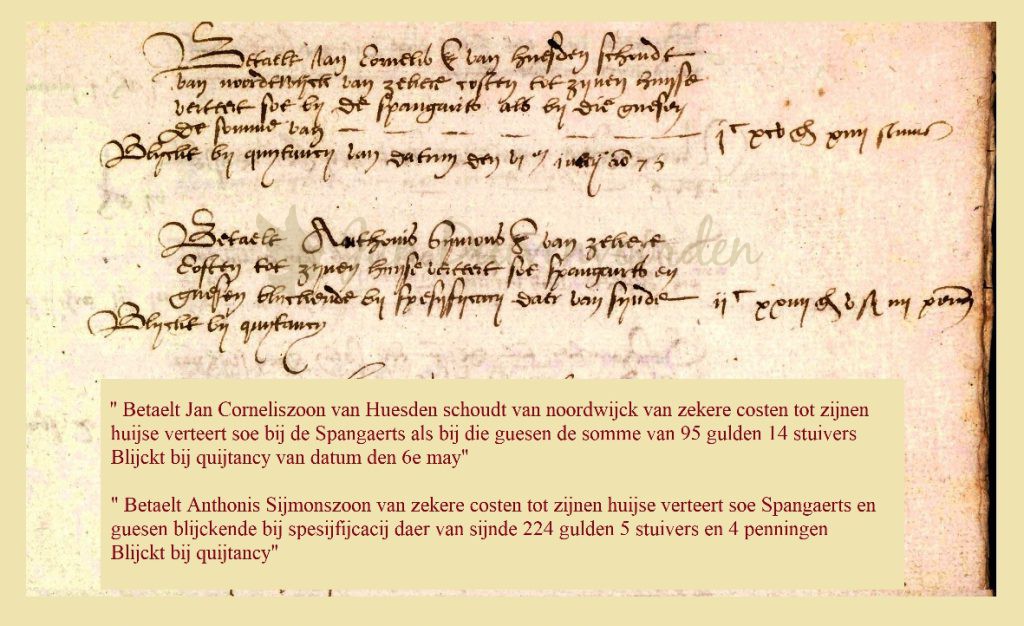 Betaelt Jan Cornelis z van huesden schoudt
van noordtwijck van zekere costen tot zijnen huijse
verteert soe bij de spangarts als bij die guesen
de somme van — — — jc xcv gl xiiij stuver
Blijckt bij quytancy van datum den vi en
Betaelt Anthonis Sijmons z van zekere
costen tot zijnen huijse verteert soe spangarts en
guesen blijckende bij spesijfijcacij daer van sijnde ijc xxiiij gl v st iiij penn
Blijckt bij quytancy
" Betaelt Jan Corneliszoon van Huesden schoudt van noordwijck van zekere costen tot zijnen
huijse verteert soe bij de Spangaerts als bij die guesen de somme van 95 gulden 14 stuivers
Blijckt bij quijtancy van datum den 6e may"
" Betaelt Anthonis Sijmonszoon van zekere costen tot zijnen huijse verteert soe Spangaerts en
guesen blijckende bij spesijfijcacij daer van sijnde 224 gulden 5 stuivers en 4 penningen
Blijckt bij quijtancy"